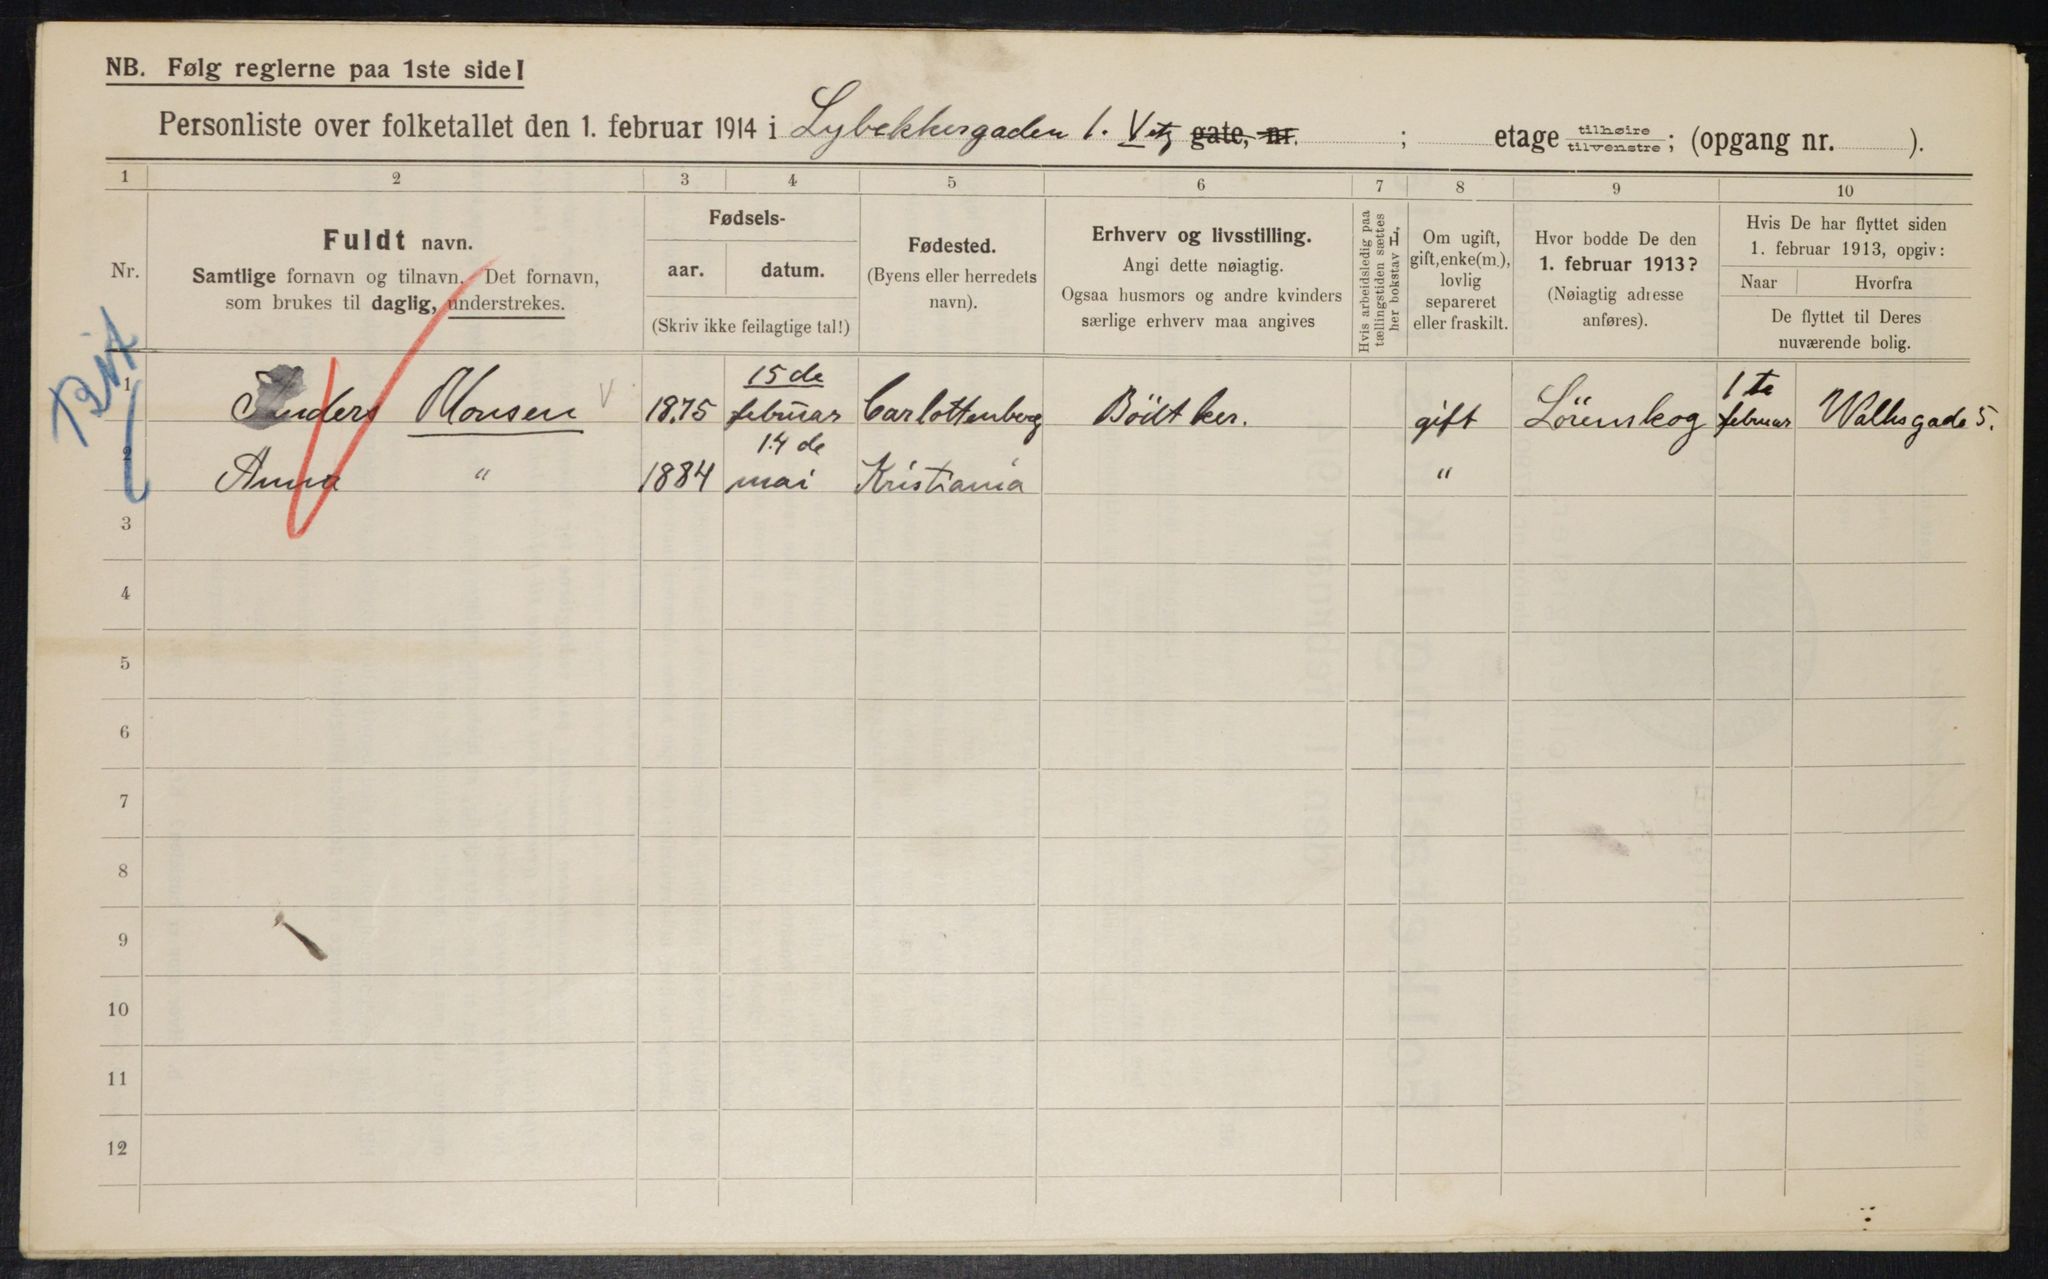 NB. Følg reglerne paa 1ste side!
Personliste over folketallet den 1. februar 1914 i Lybekkergaden 1. gate, nr. ; etage tilhøire tilvenstre; (opgang nr. ).
1 2 3 4 5 6 7 8 9 10
Nr.
Fuldt navn.
Samtlige fornavn og tilnavn. Det fornavn,
som brukes til daglig, understrekes.
Fødsels-
aar. datum.
(Skriv ikke feilagtige tal!)
Fødested.
(Byens eller herredets
navn).
Erhverv og livsstilling.
Angi dette nøiagtig.
Ogsaa husmors og andre kvinders
særlige erhverv maa angives
Hvis arbeidsledig paa
tællingstiden sættes
her bokstav L.
Om ugift,
gift, enke(m.),
lovlig
separeret
eller fraskilt.
Hvor bodde De den
1. februar 1913?
(Nøiagtig adresse
anføres).
Hvis De har flyttet siden
1. februar 1913, opgiv:
Naar Hvorfra
De flyttet til Deres
nuværende bolig.
1 Anders Monsen 1875 15de februar Carlottenberg Bödtker. gift Lörenskog 1te februar 5.
2 Anna " 1884 14de mai Kristiania "
3
4
5
6
7
8
9
10
11
12